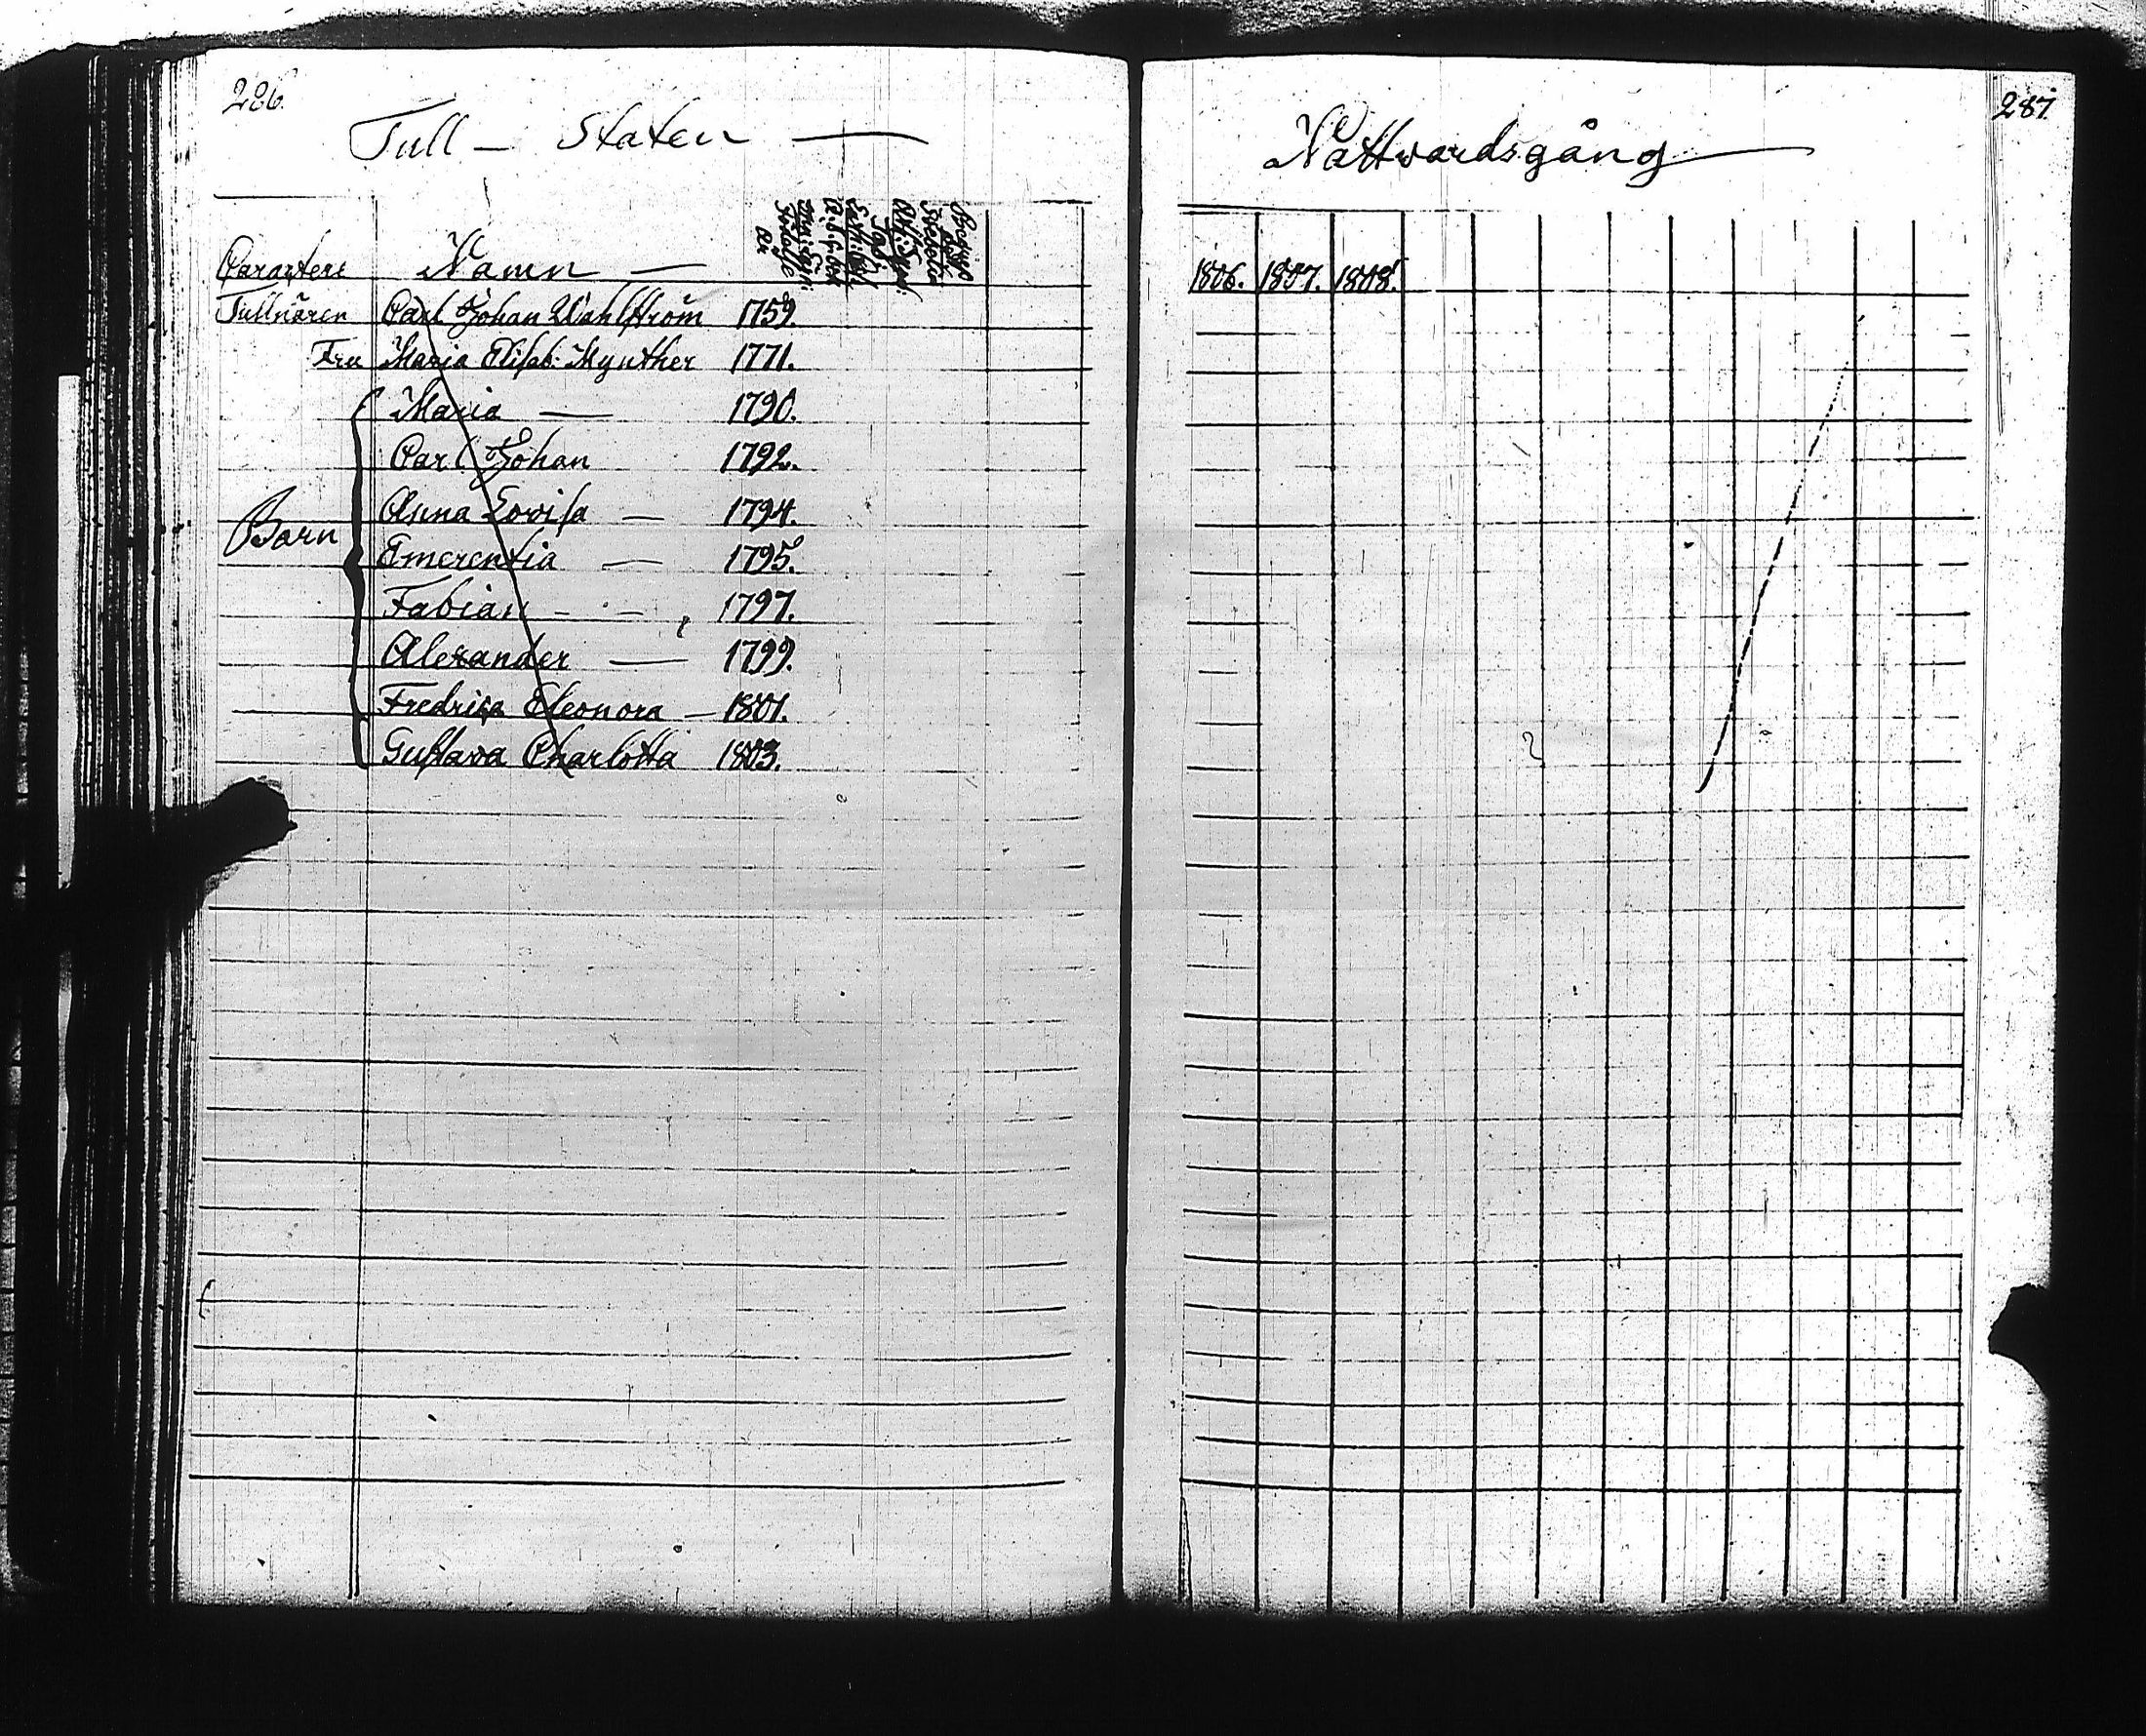 286.
Tull – Staten —
Caracters Namn —
Födelse År
Tullnären Carl Johan Wahlström 1759.
Fru Maria Elisab: Mynther 1771.
Maria — 1790.
Carl Johan 1792.
Anna Lovisa — 1794.
Barn
Emerentia — 1795.
Fabian – – 1797.
Alexander — 1799.
Fredrica Eleonora – 1801.
Gustava Charlotta 1803.
287.
Nattvardsgång
1806. 1807. 1808.